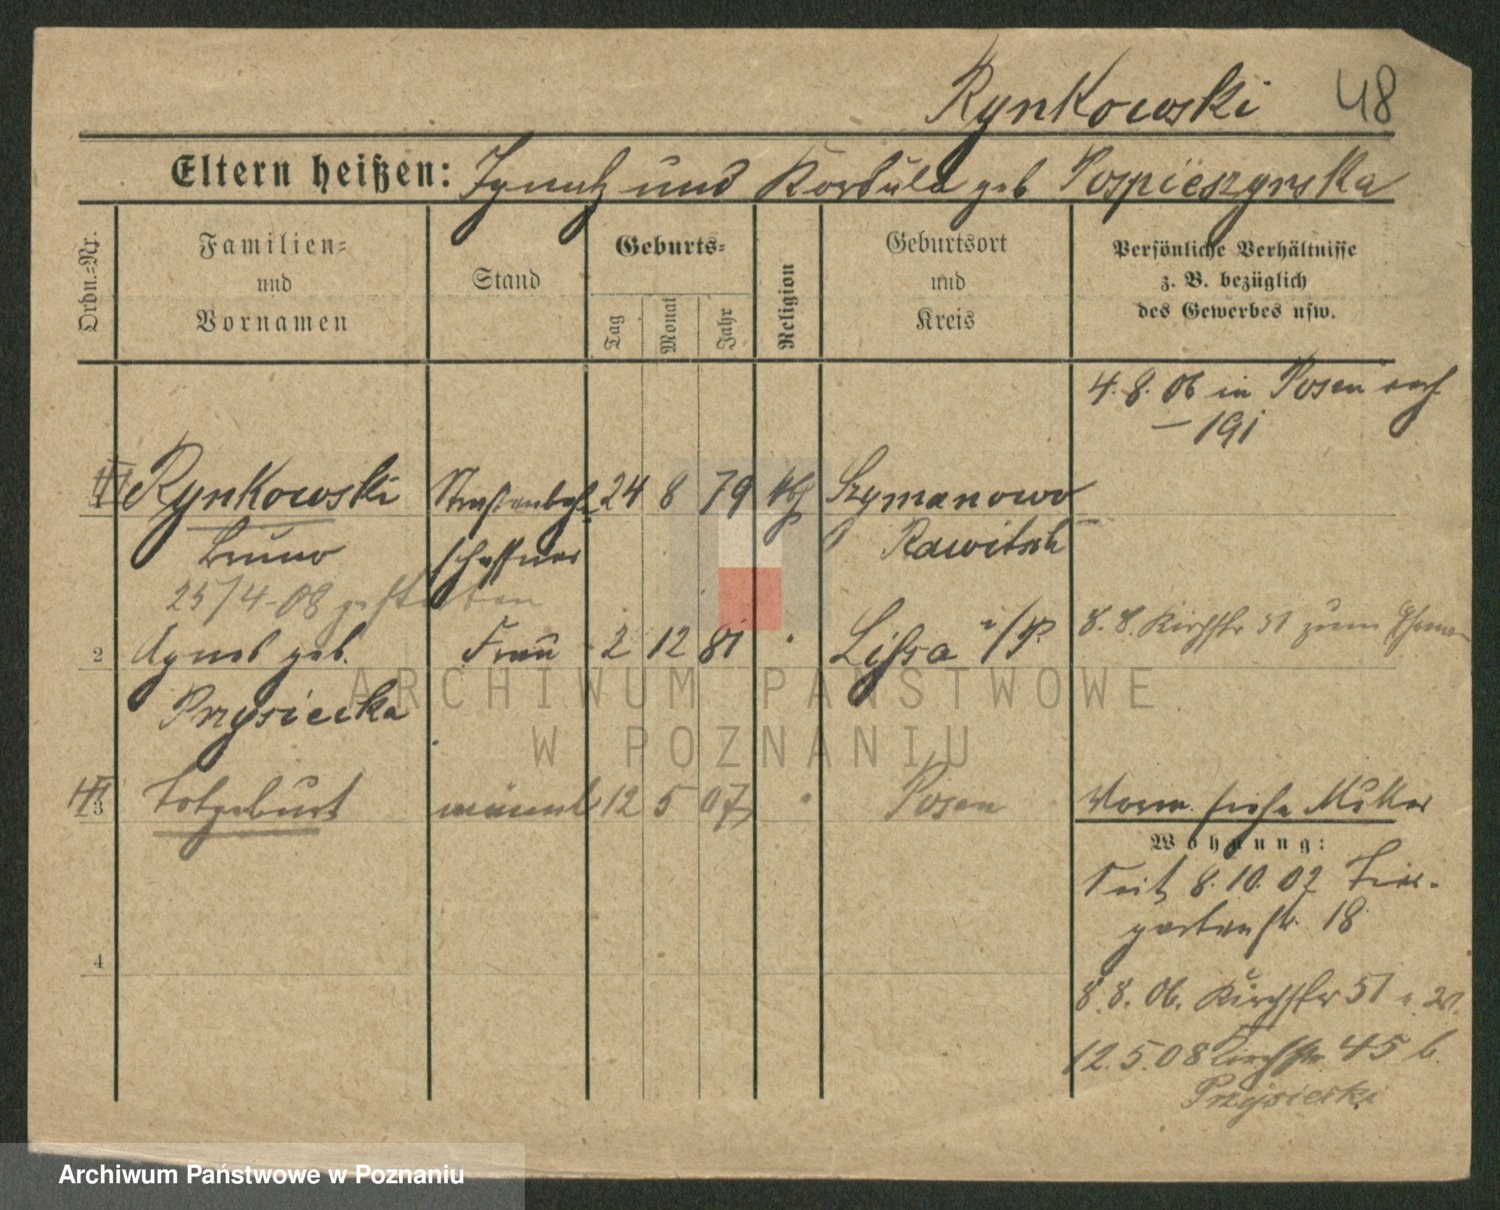 Rynkowski 48
Eltern heißen: Ignatz und Kordula geb Pospieszynska
Ordn.=Nr.
Familien=
und
Vornamen
Stand
Geburts=
Tag
Monat
Jahr
Religion
Geburtsort
und
Kreis
Persönliche Verhältnisse
z. B. bezüglich
des Gewerbes usw.
4. 8. 06 in Posen
– 191
Rynkowski Straßenbah 24 8 79 kath Szymanowo
Bruno schaffner Rawitsch
25/4-08 gestorben
2 Agnes geb. Frau 2 12 81 " Lissa i/P 8. 8. Kirchstr 51 zum
Przysiecka
3 Totgeburt männl 12 5 07 " Posen
Vorm. siehe Mutter
Wohnung:
Seit 8. 10. 02 Tier-
gartenstr. 18
8. 8. 06. Kirchstr 51
12. 5. 08 Kirchstr. 45 b.
Przysiecki
4
ARCHIWUM PAŃSTWOWE
W POZNANIU
Archiwum Państwowe w Poznaniu